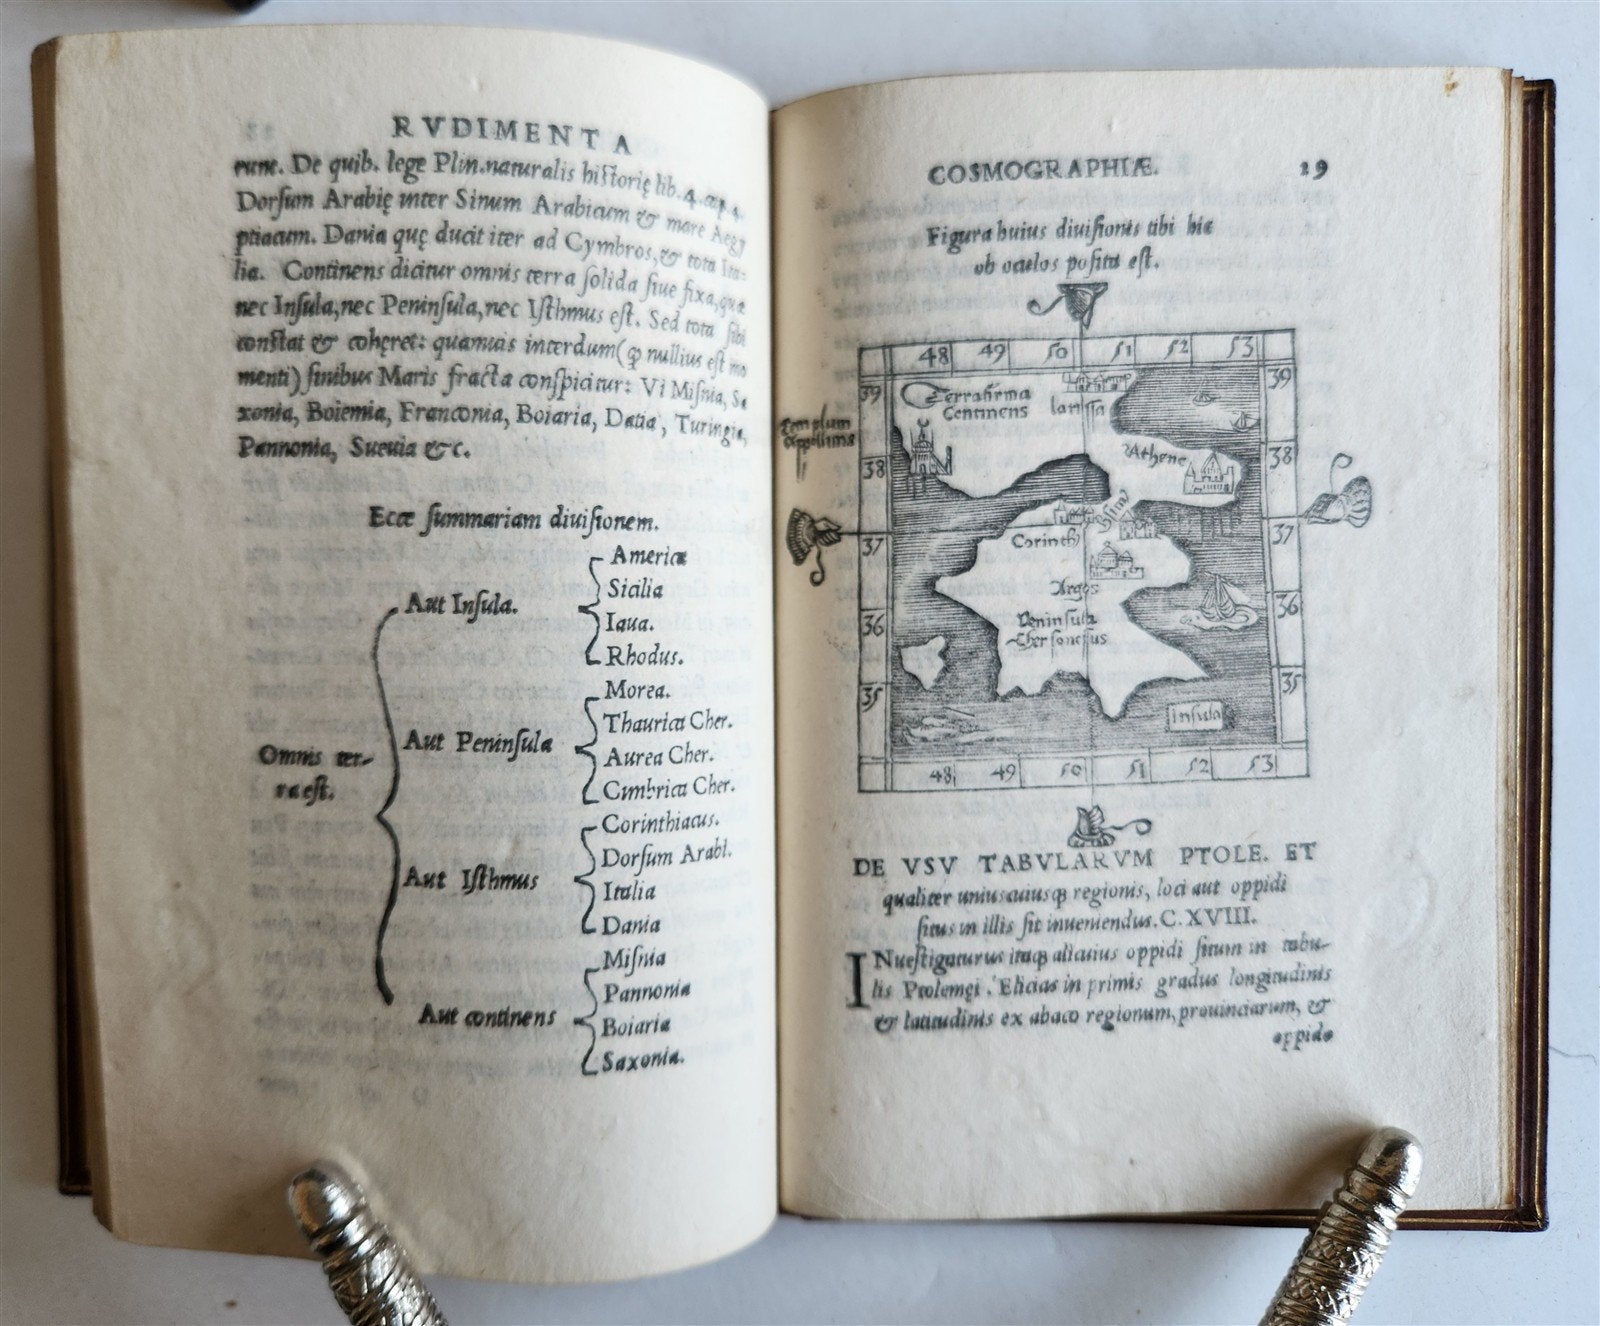 RVDIMENTA
runt. De quib. lege Plin.naturalis historię lib. 4. cap 4.
Dorsum Arabię inter Sinum Arabicum & mare Aegy
ptiacum. Dania quę ducit iter ad Cymbros, & tota Ita-
lia. Continens dicitur omnis terra solida siue fixa, quæ
nec Insula, nec Peninsula, nec Isthmus est. Sed tota sibi
constat & cohęret: quamuis interdum (ꝙ nullius est mo
menti) finibus Maris fracta conspicitur: Vt Misnia, Sa
xonia, Boiemia, Franconia, Boiaria, Datia, Turingia,
Pannonia, Sueuia &c.
Ecce summariam diuisionem.
Omnis ter-
ra est.
Aut Insula.
America
Sicilia
Iaua.
Rhodus.
Aut Peninsula
Morea.
Thaurica Cher.
Aurea Cher.
Cimbrica Cher.
Aut Isthmus
Corinthiacus.
Dorsum ArabI.
Italia
Dania
Aut continens
Misnia
Pannonia
Boiaria
Saxonia.
COSMOGRAPHIÆ. 19
Figura huius diuisionis tibi hic
ob oculos posita est.
48 49 50 51 52 53
39 39
Terra firma
Continens
larissa
Templum
Appollinis
38 38
Athene
37 37
Corinth
Argos
36 36
Peninsula
Chersonesus
35 35
Insula
48 49 50 51 52 53
DE VSV TABVLARVM PTOLE. ET
qualiter uniuscuiusꝗ regionis, loci aut oppidi
situs in illis sit inueniendus. C. XVIII.
INuestigaturus itaꝗ alicuius oppidi situm in tabu-
lis Ptolemęi. Elicias in primis gradus longitudinis
& latitudinis ex abaco regionum, prouinciarum, &
oppido